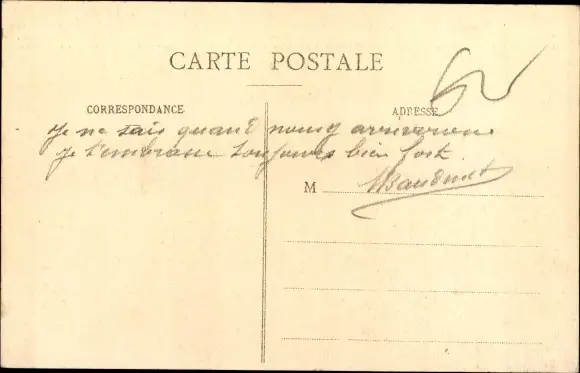 CARTE POSTALE
CORRESPONDANCE
ADRESSE
je ne sais quand nous y arriverons
je t'embrasse toujours bien fort
M